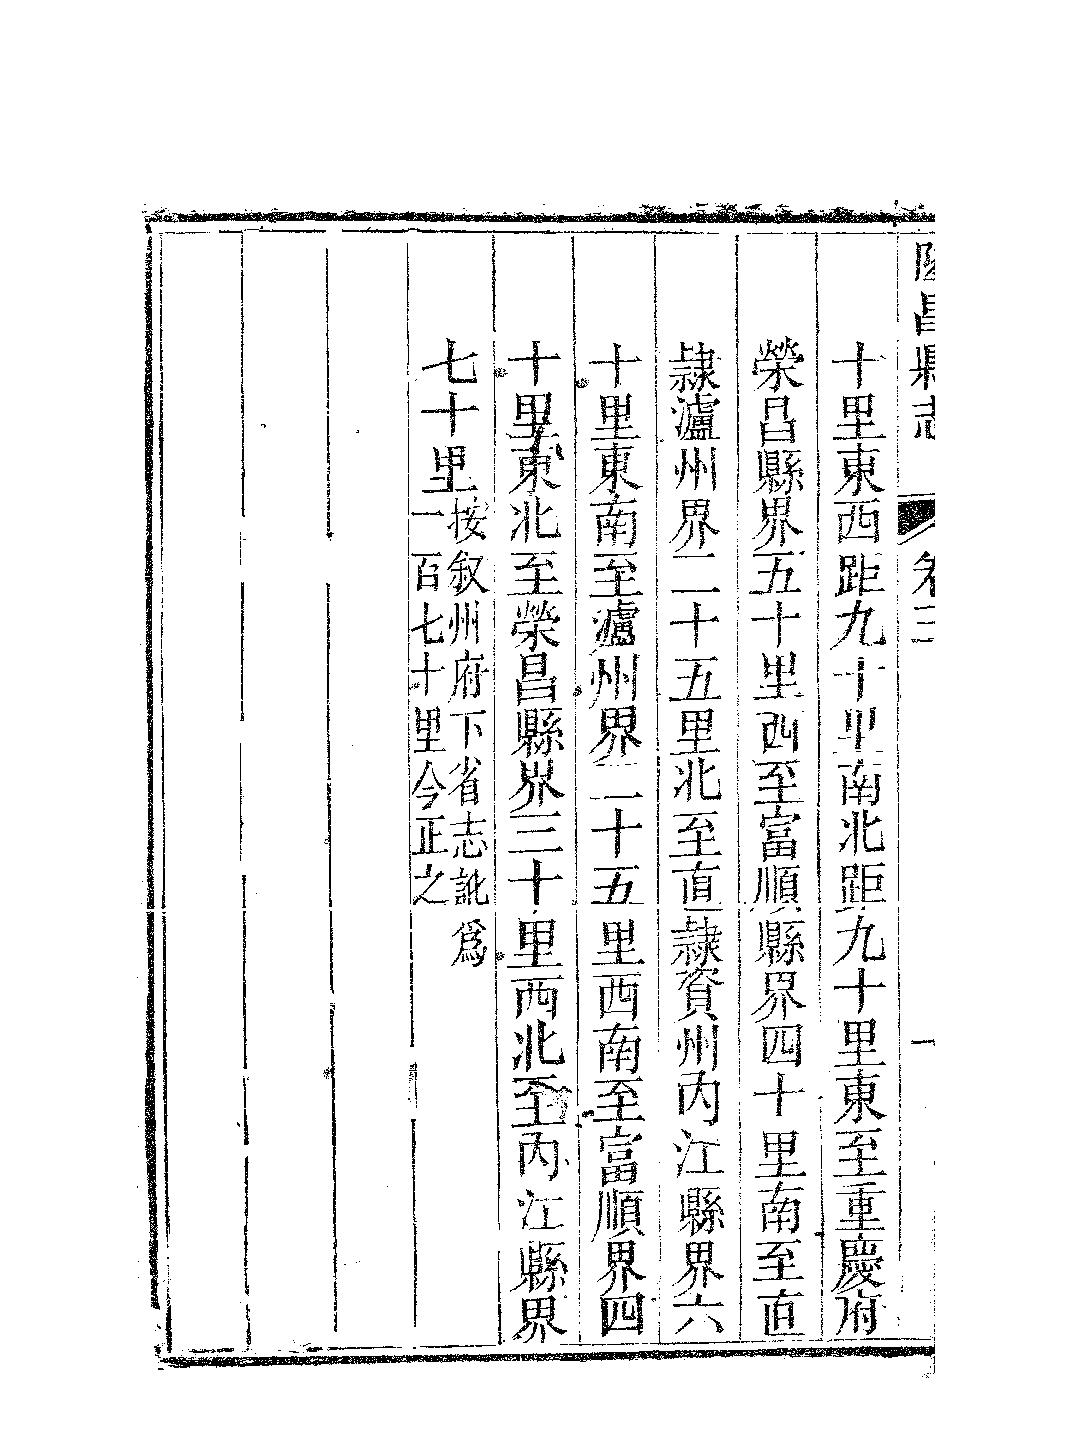 隆昌縣志 卷二 一
十里東西距九十里南北距九十里東至重慶府
榮昌縣界五十里西至富順縣界四十里南至直
隸瀘州界二十五里北至直隸資州內江縣界六
十里東南至瀘州界二十五里西南至富順界四
十里東北至榮昌縣界三十里西北至內江縣界
七十里
按叙州府下省志訛爲
一百七十里今正之